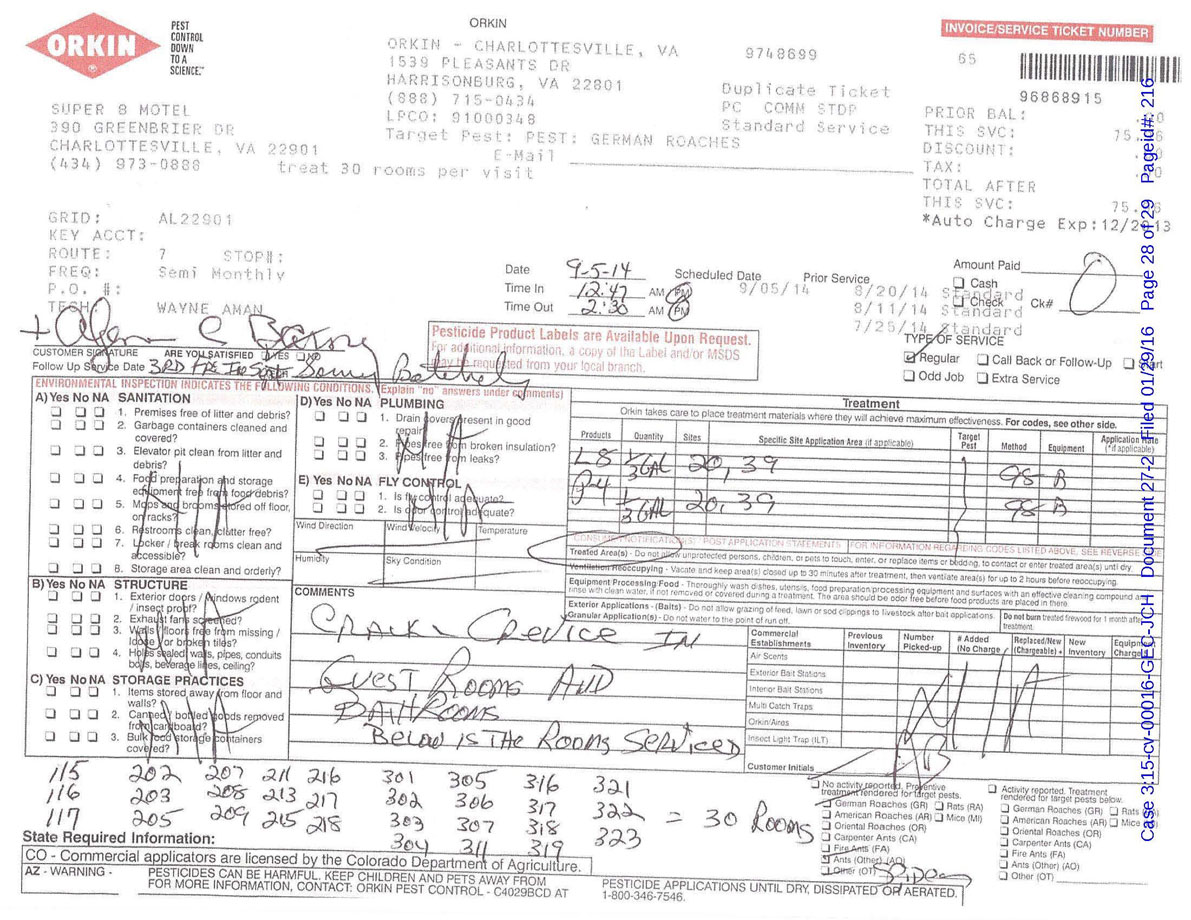 ORKIN
PEST
CONTROL
DOWN
TO A
SCIENCE.™
ORKIN
ORKIN - CHARLOTTESVILLE, VA
1539 PLEASANTS DR
HARRISONBURG, VA 22801
(888) 715-0434
LPCO: 91000348
Target Pest: PEST: GERMAN ROACHES
E-Mail
9748699
Duplicate Ticket
PC COMM STDP
Standard Service
INVOICE/SERVICE TICKET NUMBER
65
96868915
PRIOR BAL:
THIS SVC: 75.
DISCOUNT:
TAX:
TOTAL AFTER
THIS SVC: 75.
*Auto Charge Exp:12/2013
SUPER 8 MOTEL
390 GREENBRIER DR
CHARLOTTESVILLE, VA 22901
(434) 973-0888
treat 30 rooms per visit
GRID: AL22901
KEY ACCT:
ROUTE: 7 STOP#:
FREQ: Semi Monthly
P.O. #:
TECH: WAYNE AMAN
Date 9-5-14
Time In 12:47 AM PM
Time Out 2:30 AM PM
Scheduled Date
9/05/14
Prior Service
8/20/14 Standard
8/11/14 Standard
7/25/14 Standard
Amount Paid 0
Cash
Check Ck#
TYPE OF SERVICE
Regular Call Back or Follow-Up Start
Odd Job Extra Service
CUSTOMER SIGNATURE ARE YOU SATISFIED YES NO
Follow Up Service Date
Pesticide Product Labels are Available Upon Request.
For additional information, a copy of the Label and/or MSDS
may be requested from your local branch.
ENVIRONMENTAL INSPECTION INDICATES THE FOLLOWING CONDITIONS. (Explain "no" answers under comments)
A) Yes No NA SANITATION
1. Premises free of litter and debris?
2. Garbage containers cleaned and
covered?
3. Elevator pit clean from litter and
debris?
4. Food preparation and storage
equipment free from food debris?
5. Mops and brooms stored off floor,
on racks?
6. Restrooms clean, clutter free?
7. Locker / break rooms clean and
accessible?
8. Storage area clean and orderly?
N/A
B) Yes No NA STRUCTURE
1. Exterior doors / windows rodent
/ insect proof?
2. Exhaust fans screened?
3. Walls / floors free from missing /
loose or broken tiles?
4. Holes sealed: walls, pipes, conduits
boxs, beverage lines, ceiling?
N/A
C) Yes No NA STORAGE PRACTICES
1. Items stored away from floor and
walls?
2. Canned / bottled goods removed
from cardboard?
3. Bulk food storage containers
covered?
N/A
D) Yes No NA PLUMBING
1. Drain covers present in good
repair?
2. Pipes free from broken insulation?
3. Pipes free from leaks?
N/A
E) Yes No NA FLY CONTROL
1. Is fly control adequate?
2. Is odor control adequate?
N/A
Wind Direction Wind Velocity Temperature
Humidity Sky Condition
COMMENTS
CRACK - CREVICE IN
GUEST ROOMS AND
BATHROOMS
BELOW IS THE ROOMS SERVICED
Treatment
Orkin takes care to place treatment materials where they will achieve maximum effectiveness. For codes, see other side.
Products Quantity Sites Specific Site Application Area (if applicable) Target Pest Method Equipment Application Rate (*if applicable)
L8 1/3 GAL 20, 39 98 B
P4 1/3 GAL 20, 39 98 B
CONSUMER NOTIFICATION(S): POST APPLICATION STATEMENTS FOR INFORMATION REGARDING CODES LISTED ABOVE, SEE REVERSE SIDE
Treated Area(s) - Do not allow unprotected persons, children, or pets to touch, enter, or replace items or bedding, to contact or enter treated area(s) until dry
Ventilation Reoccupying - Vacate and keep area(s) closed up to 30 minutes after treatment, then ventilate area(s) for up to 2 hours before reoccupying.
Equipment Processing/Food - Thoroughly wash dishes, utensils, food preparation/processing equipment and surfaces with an effective cleaning compound and
rinse with clean water, if not removed or covered during a treatment. The area should be odor free before food products are placed in there.
Exterior Applications - (Baits) - Do not allow grazing of feed, lawn or sod clippings to livestock after bait applications.
Granular Application(s) - Do not water to the point of run off.
Do not burn treated firewood for 1 month after
treatment.
Commercial Establishments Previous Inventory Number Picked-up # Added (No Charge) Replaced/New (Chargeable) + New Inventory Equipment Charge
Air Scents
Exterior Bait Stations
Interior Bait Stations
Multi Catch Traps
Orkin/Aires
Insect Light Trap (ILT)
N/A
Customer Initials AB
115 202 207 211 216 301 305 316 321
116 203 208 213 217 302 306 317 322 = 30 ROOMS
117 205 209 215 218 303 307 318 323
304 311 319
No activity reported, Preventive
treatment rendered for target pests.
German Roaches (GR) Rats (RA)
American Roaches (AR) Mice (MI)
Oriental Roaches (OR)
Carpenter Ants (CA)
Fire Ants (FA)
Ants (Other) (AO)
Other (OT)
Activity reported. Treatment
rendered for target pests below.
German Roaches (GR) Rats (RA)
American Roaches (AR) Mice (MI)
Oriental Roaches (OR)
Carpenter Ants (CA)
Fire Ants (FA)
Ants (Other) (AO)
Other (OT)
State Required Information:
CO - Commercial applicators are licensed by the Colorado Department of Agriculture.
AZ - WARNING - PESTICIDES CAN BE HARMFUL. KEEP CHILDREN AND PETS AWAY FROM
FOR MORE INFORMATION, CONTACT: ORKIN PEST CONTROL - C4029BCD AT
PESTICIDE APPLICATIONS UNTIL DRY, DISSIPATED OR AERATED.
1-800-346-7546.
Case 3:15-cv-00016-GEC-JCH Document 27-2 Filed 01/29/16 Page 28 of 29 Pageid#: 216